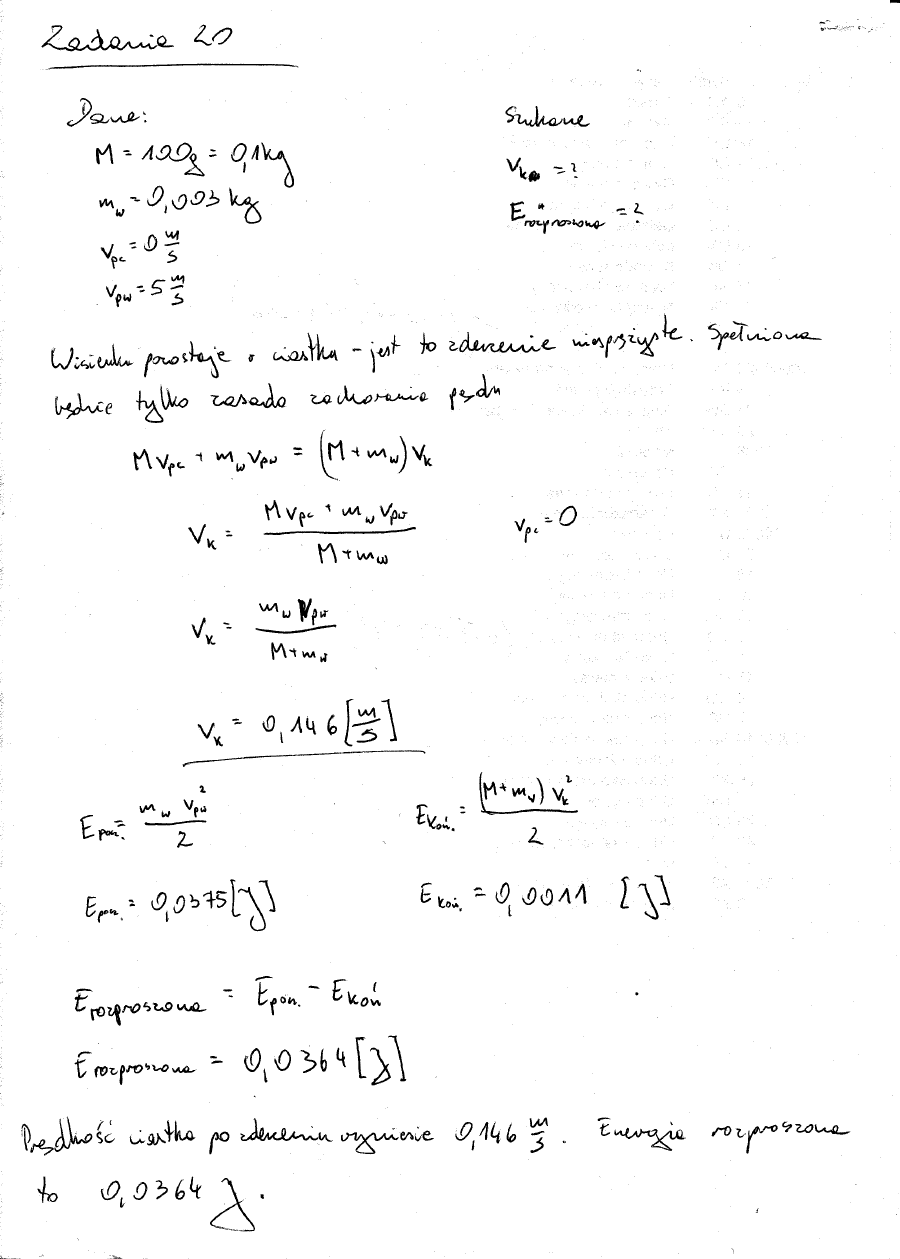 Zadanie 20
Dane:
Szukane
M = 100g = 0,1kg
V_k = ?
m_w = 0,003 kg
E_rozproszona = ?
V_pc = 0 m/s
V_pw = 5 m/s
Wisienka pozostaje w ciastku - jest to zderzenie niesprężyste. Spełniona
będzie tylko zasada zachowania pędu
M V_pc + m_w V_pw = (M + m_w) V_k
V_k = (M V_pc + m_w V_pw) / (M + m_w)
V_pc = 0
V_k = m_w V_pw / (M + m_w)
V_k = 0,146 [m/s]
E_pocz. = m_w V_pw² / 2
E_koń. = (M + m_w) V_k² / 2
E_pocz. = 0,0375 [J]
E_koń. = 0,0011 [J]
E_rozproszona = E_pocz. - E_koń
E_rozproszona = 0,0364 [J]
Prędkość ciastka po zderzeniu wyniesie 0,146 m/s. Energia rozproszona
to 0,0364 J.